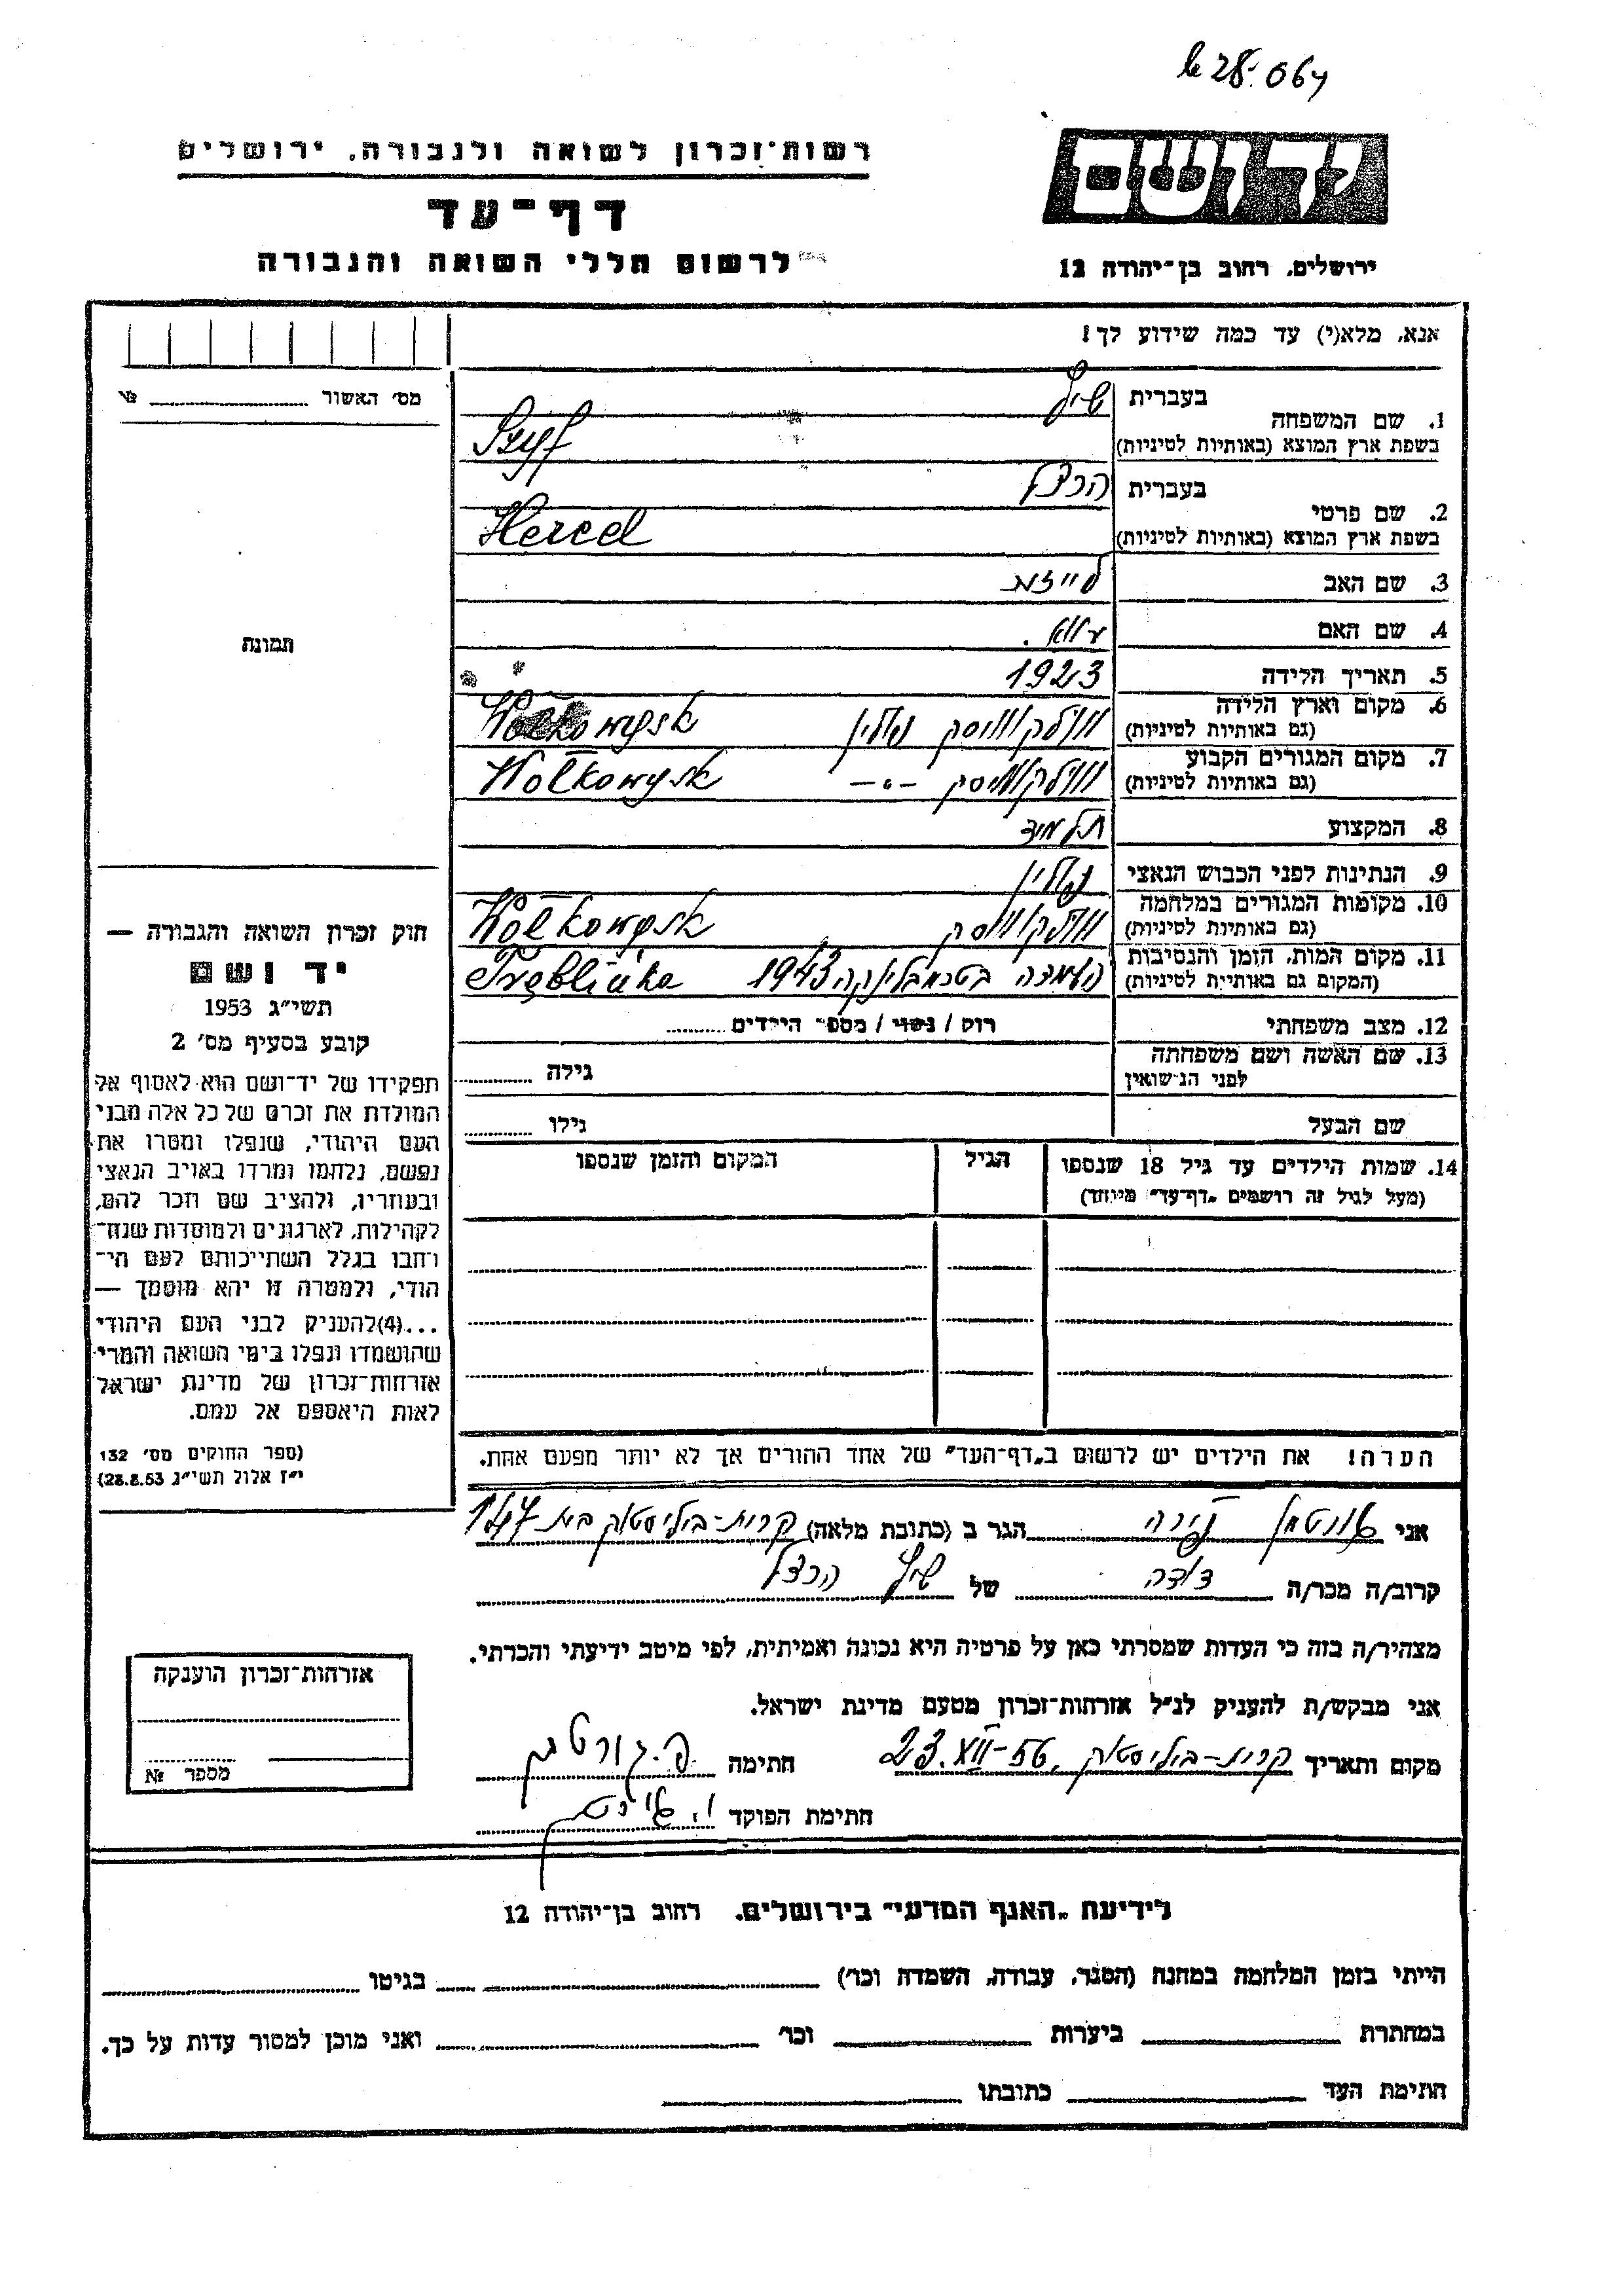 28.064
רשות־זכרון לשואה ולגבורה, ירושלים
יד ושם
דף־עד
לרשום חללי השואה והגבורה
ירושלים, רחוב בן־יהודה 12
אנא, מלא(י) עד כמה שידוע לך!
מס׳ האשור № 
תמונה
1. שם המשפחה
בעברית שיף
בשפת ארץ המוצא (באותיות לטיניות) Szyf
2. שם פרטי
בעברית הרצל
בשפת ארץ המוצא (באותיות לטיניות) Hercel
3. שם האב לייזר
4. שם האם
5. תאריך הלידה 1923
6. מקום וארץ הלידה (גם באותיות לטיניות) וולקוויסק פולין Wołkowysk
7. מקום המגורים הקבוע (גם באותיות לטיניות) וולקוויסק -״- Wołkowysk
8. המקצוע תלמיד
9. הנתינות לפני הכבוש הנאצי פולין
10. מקומות המגורים במלחמה (גם באותיות לטיניות) וולקוויסק Wołkowysk
11. מקום המות, הזמן והנסיבות (המקום גם באותיות לטיניות) 1943 Tręblinka
12. מצב משפחתי רוק / נשוי / מספר הילדים
13. שם האשה ושם משפחתה לפני הנישואין גילה
שם הבעל גילו
14. שמות הילדים עד גיל 18 שנספו הגיל המקום והזמן שנספו
(מעל לגיל זה רושמים „דף־עד״ מיוחד)
הערה! את הילדים יש לרשום ב„דף־העד״ של אחד ההורים אך לא יותר מפעם אחת.
חוק זכרון השואה והגבורה —
יד ושם
תשי״ג 1953
קובע בסעיף מס׳ 2
תפקידו של יד־ושם הוא לאסוף אל
המולדת את זכרם של כל אלה מבני
העם היהודי, שנפלו ומסרו את
נפשם, נלחמו ומרדו באויב הנאצי
ובעוזריו, ולהציב שם וזכר להם,
לקהילות, לארגונים ולמוסדות שנח־
רבו בגלל השתייכותם לעם הי־
הודי, ולמטרה זו יהא מוסמך —
...(4)להעניק לבני העם היהודי
שהושמדו ונפלו בימי השואה והמרי
אזרחות־זכרון של מדינת ישראל
לאות היאספם אל עמם.
(ספר החוקים מס׳ 132
י״ז אלול תשי״ג 28.8.53)
אני הגר ב (כתובת מלאה) קרית-ביליסטוק בית
קרוב/ה מכר/ה דודה של שיף הרצל
מצהיר/ה בזה כי העדות שמסרתי כאן על פרטיה היא נכונה ואמיתית, לפי מיטב ידיעתי והכרתי.
אני מבקש/ת להעניק לנ״ל אזרחות־זכרון מטעם מדינת ישראל.
מקום ותאריך קרית-ביליסטוק, 23.XII-56 חתימה
חתימת הפוקד
אזרחות־זכרון הוענקה
מספר №
לידיעת „האגף המדעי״ בירושלים. רחוב בן־יהודה 12
הייתי בזמן המלחמה במחנה (הסגר, עבודה, השמדה וכר׳) בגיטו
במחתרת ביערות וכר׳ ואני מוכן למסור עדות על כך.
חתימת העד כתובתו